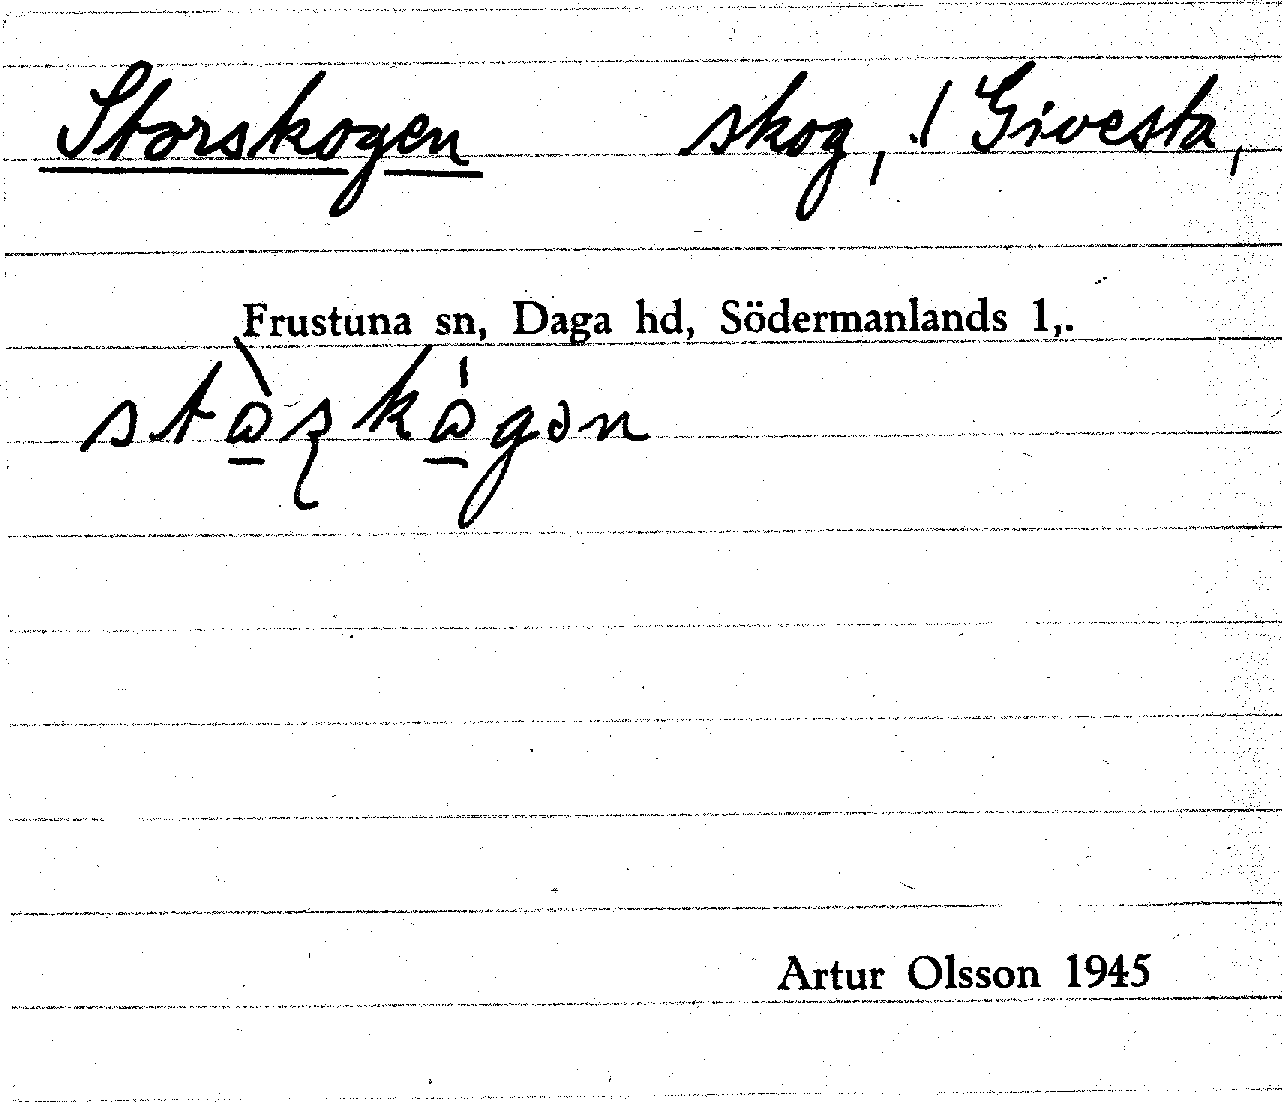 Storskogen skog, / Givesta,
Frustuna sn, Daga hd, Södermanlands l,.
Artur Olsson 1945